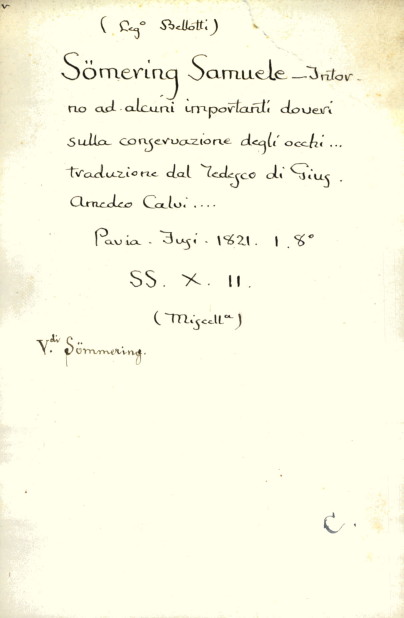 ( Legº Bellotti )
Sömering Samuele - Intor-
no ad alcuni importanti doveri
sulla conservazione degli occhi ...
traduzione dal Tedesco di Gius.
Amedeo Calvi ....
Pavia. Fusi. 1821. 1. 8º
SS. X. 11.
( Miscellª )
V.di Sömmering.
C.